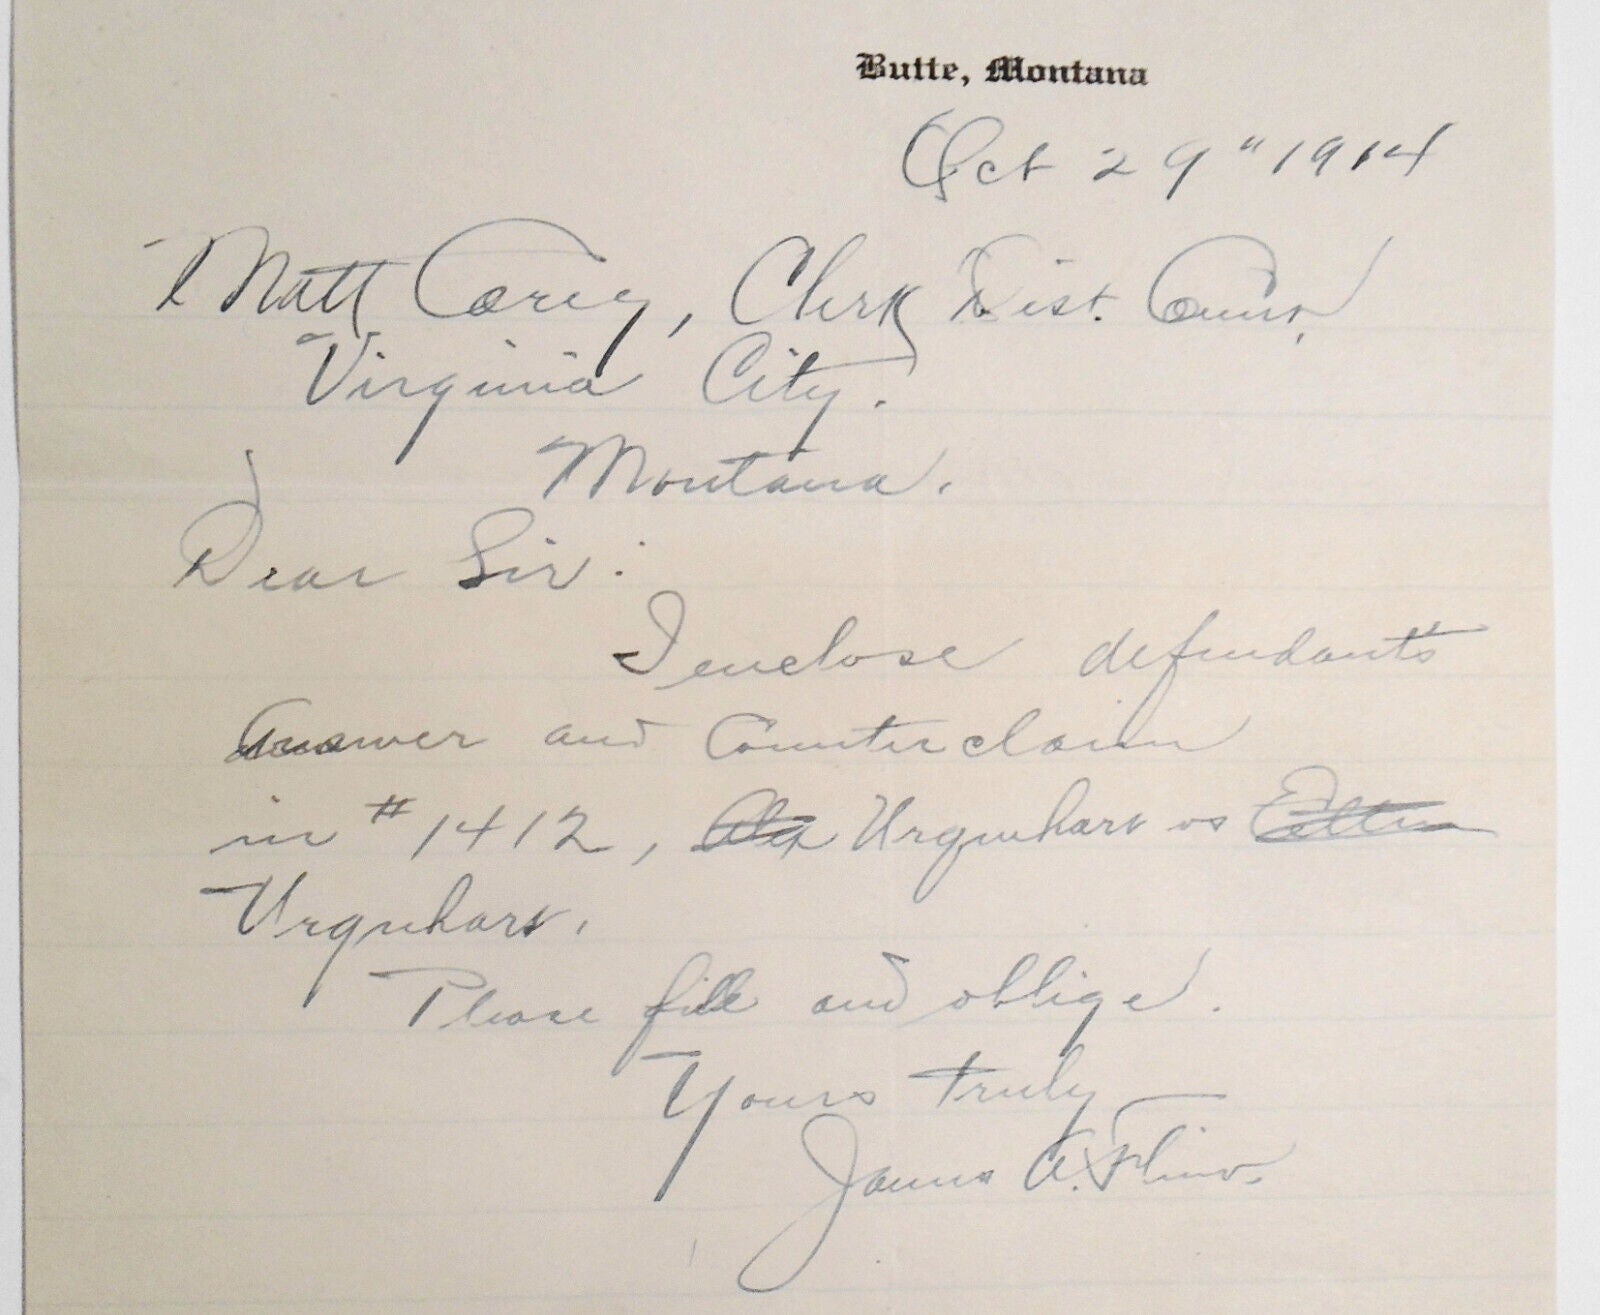 Butte, Montana
Oct 29" 1914
Matt Carey, Clerk Dist. Court,
Virginia City.
Montana.
Dear Sir:
I enclose defendant's
answer and Counterclaim
in #1412, Urquhart vs
Urquhart.
Please file and oblige.
Yours truly
James A.